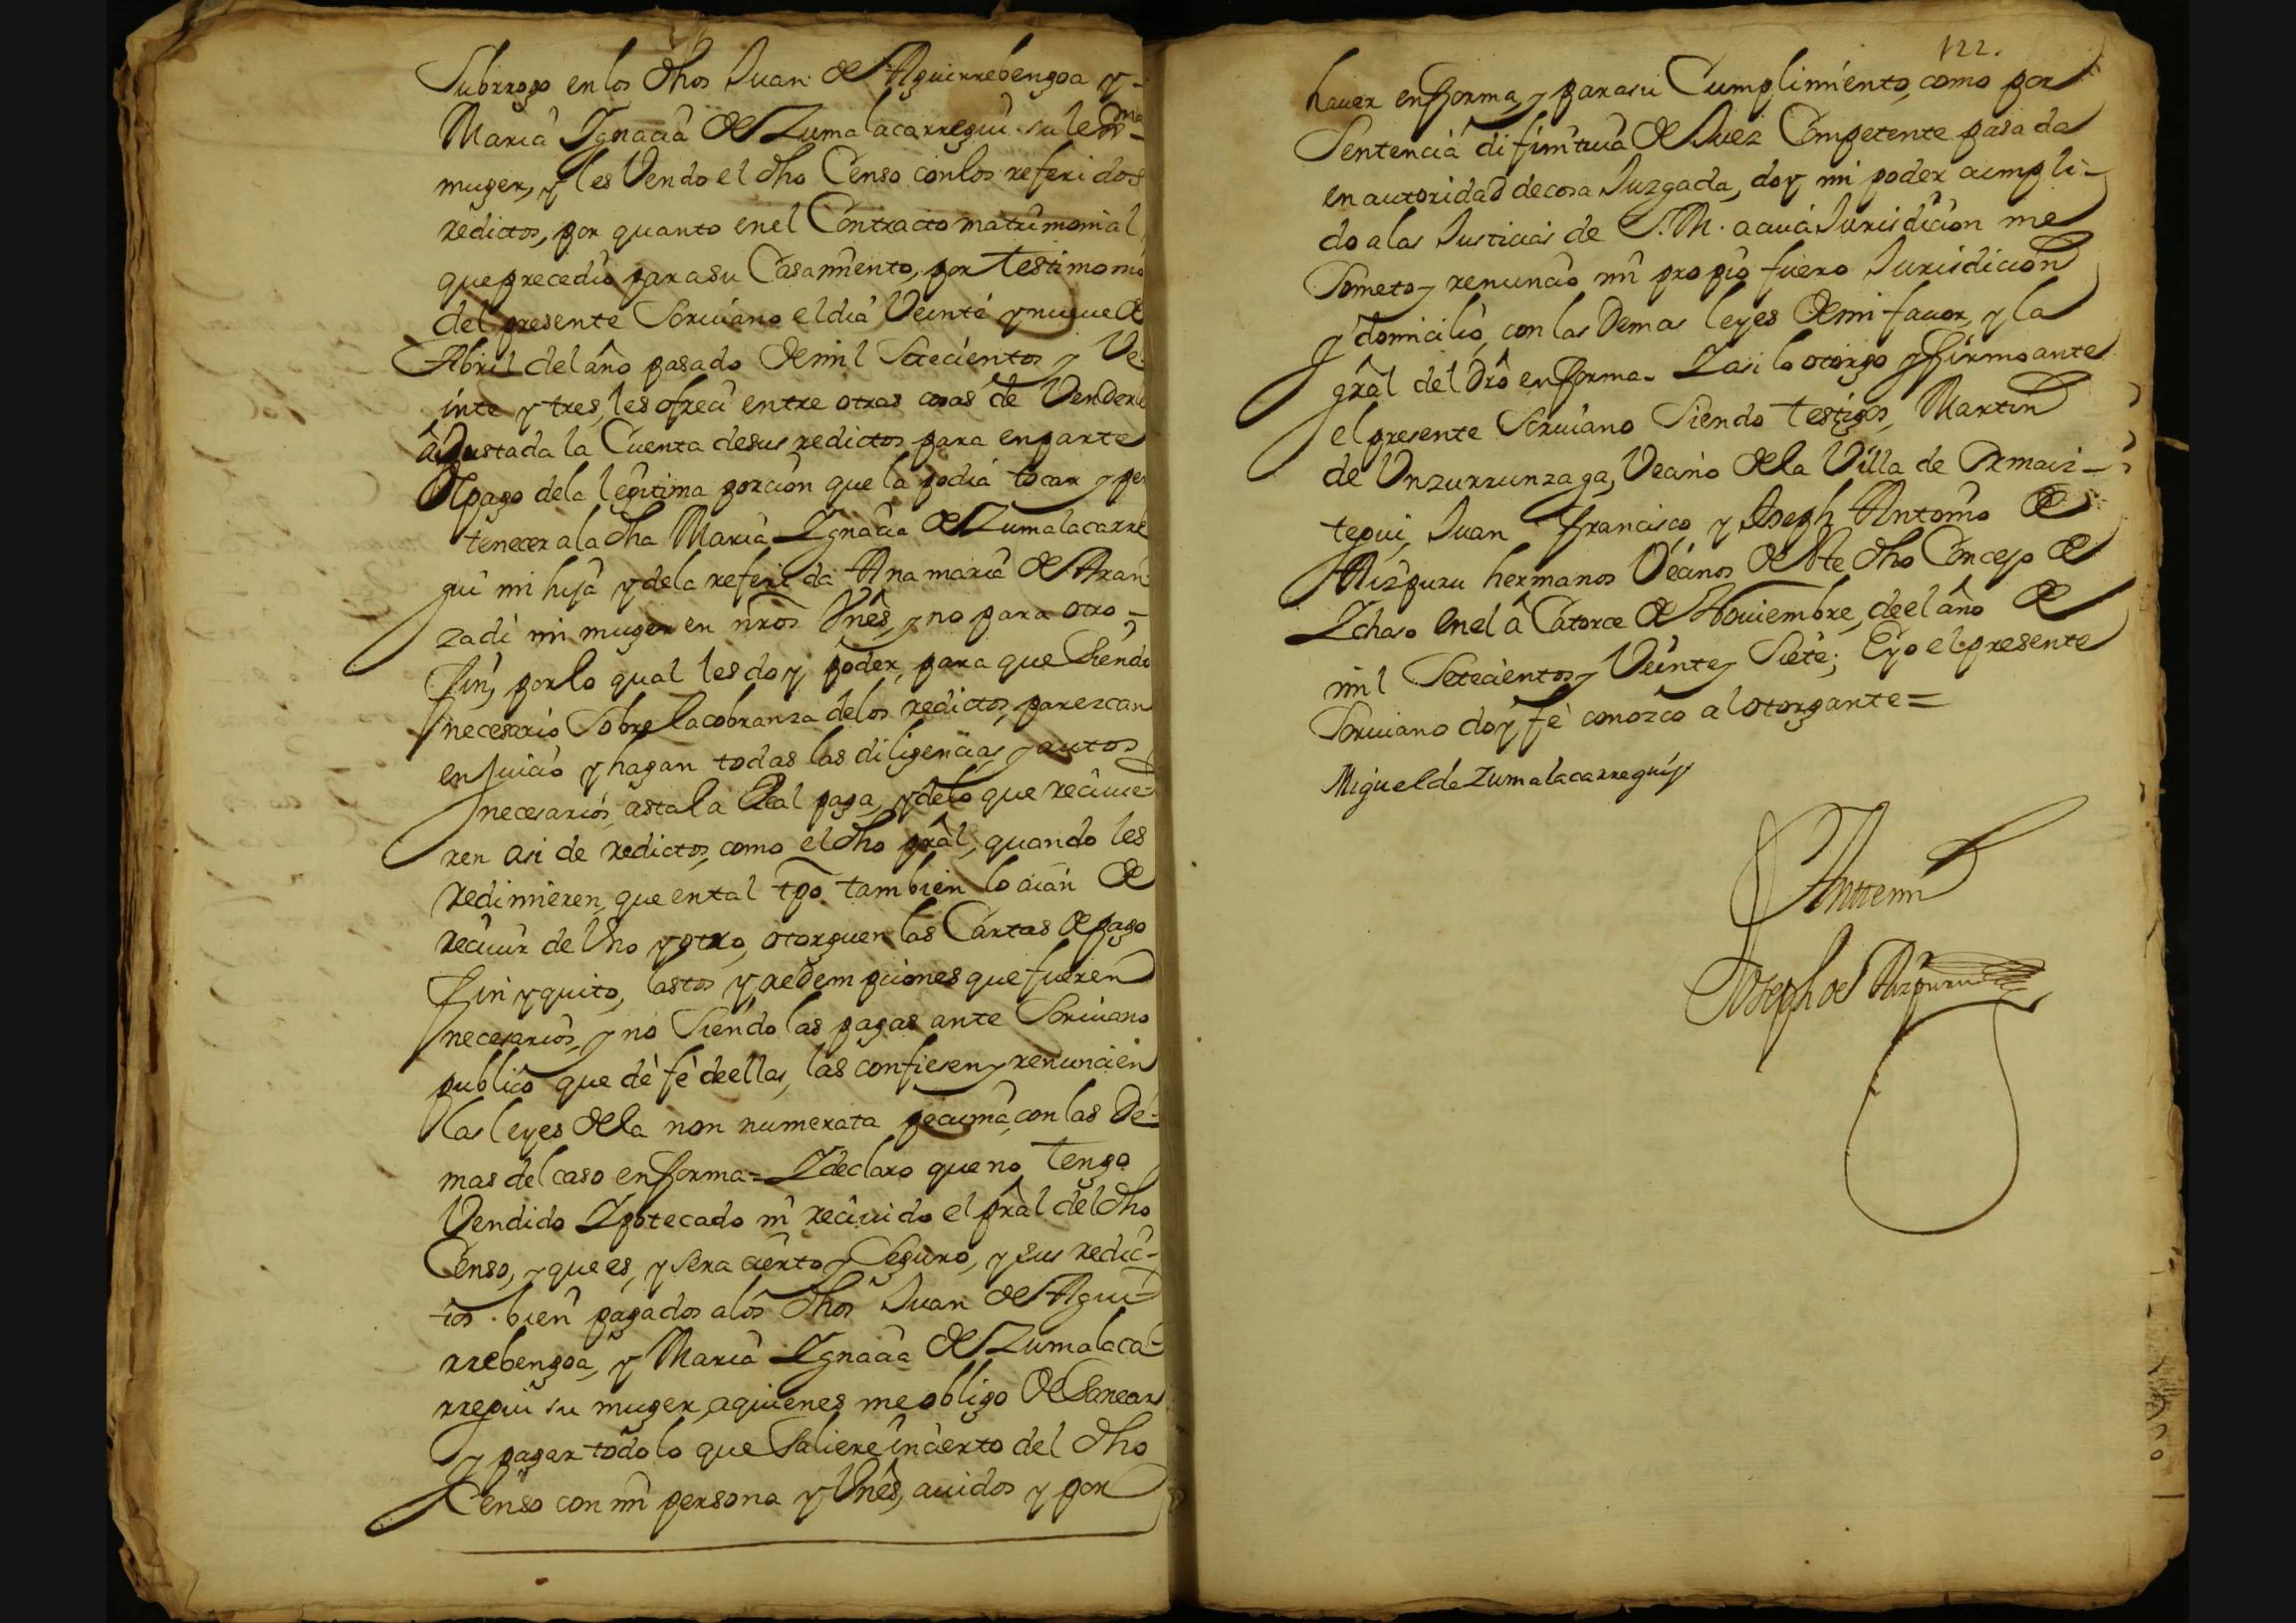 Subrrogo en los dhos Juan de Aguirrebengoa y
Maria Ignacia de Zumalacarregui su lexma
muger, y les Vendo el dho Censo con los referidos
redictos, por quanto en el Contracto matrimonial
que precedio para su Casamiento, por testimonio
del presente Scriuano el dia Veinte y nueue de
Abril del año pasado de mil Setecientos y Ve-
inte y tres, les ofreci entre otras cosas de Venderle
ajustada la Cuenta de sus redictos para en parte
de pago dela legitima porcion que la podia tocar y per
tenecer ala dha Maria Ignacia de Zumalacarre
gui mi hija y dela referida Ana maria de Aran
zadi mi muger en nros Vnês, y no para otro
fin, por lo qual les doy poder, para que Siendo
necesario Sobre la cobranza delos redictos, parezcan
en Juicio y hagan todas las diligencias y autos
necesarios, asta la Real paga, y delo que reciuie-
ren asi de redictos, como el dho prâl, quando les
redimieren, que en tal tpo tambien lo aian de
reciuir de Vno y otro, otorguen las Cartas de pago
fin y quito, lastos y redempciones que fueren
necesarios, y no Siendo las pagas ante Scriuano
publico que dè fè deellas, las confiesen y renuncien
las leyes dela non numerata pecunia, con las De-
mas del caso en forma= I declaro que no tengo
Vendido Ipotecado ni reciuido el prâl del dho
Censo, y que es, y sera cierto y Seguro, y sus redic-
tos bien pagados alos dhos Juan de Agui-
rrebengoa, y Maria Ignacia de Zumalaca-
rregui su muger, aquienes me obligo de Sanear
y pagar todo lo que Saliere incierto del dho
Censo con mi persona y Vnês, auidos y por
122.
hauer en forma, y para su Cumplimiento, como por
Sentencia difinitiua de Juez Competente pasada
en autoridad de cosa Juzgada, doy mi poder cumpli-
do a las Justicias de S. M. a cuia Jurisdicion me
Someto y renuncio mi propio fuero Jurisdicion
y domicilio, con las Demas leyes de mi fauor, y la
grâl del Drô en forma. I asi lo otorgo y firmo ante
el presente Scriuano Siendo testigos, Martin
de Vnzurrunzaga, Vecino dela Villa de Ormaiz-
tegui, Juan Francisco, y Joseph Antonio de
Aizpuru hermanos Vecinos de Ste dho Concejo de
Ichaso en el â Catorce de Nouiembre, deel año de
mil Setecientos y Veinte y Siete; E yo el presente
Scriuano doy fè conozco al otorgante=
Miguel de Zumalacarregui
Antemi
Joseph de Aizpuru